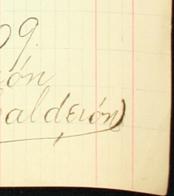 09.
ón
Calderón)